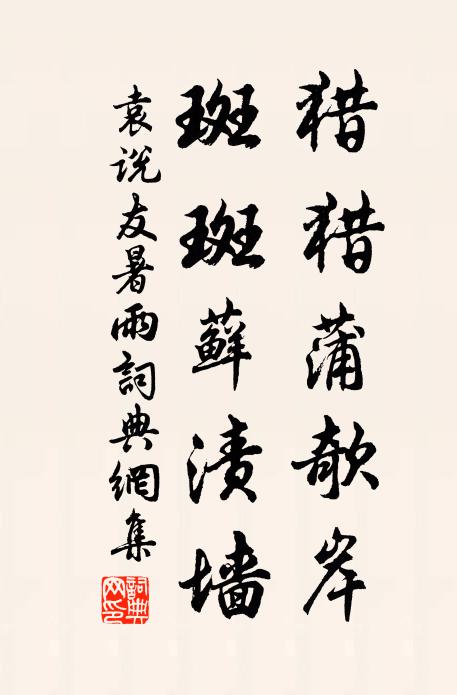 猎猎蒲欹岸
斑斑藓渍墙
袁说友暑雨詞典網集
詞典網印